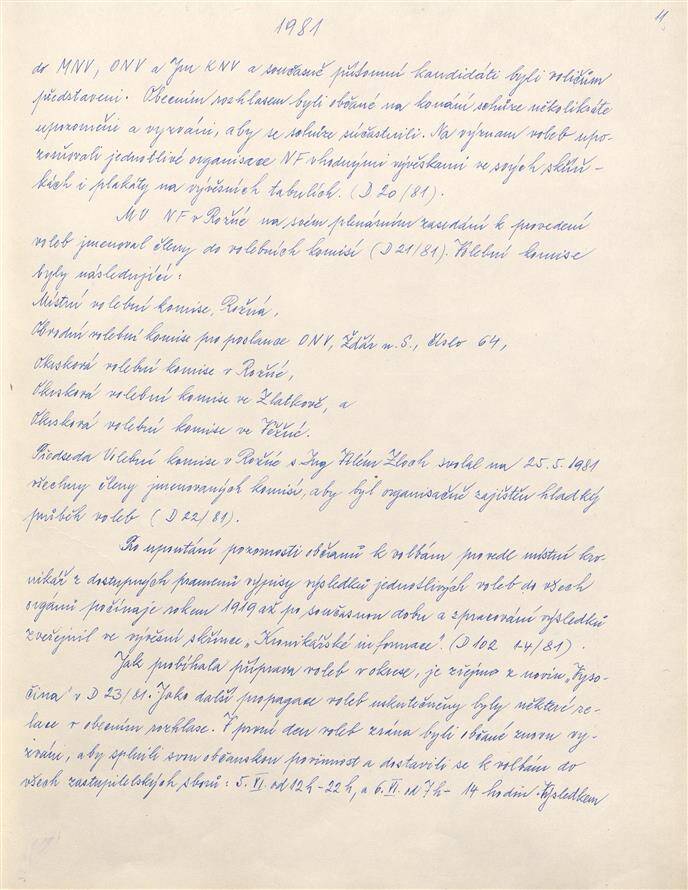 1981
11
do MNV, ONV a Jm KNV a současně přítomní kandidáti byli voličům
představeni. Obecním rozhlasem byli občané na konání schůze několikráte
upozorněni a vyzváni, aby se schůze súčastnili. Na význam voleb upo-
zorňovali jednotlivé organisace NF vhodnými vývěskami ve svých skříň-
kách i plakáty na vývěsních tabulích. (D 20/81).
MV NF v Rožné na svém plenárním zasedání k provedení
voleb jmenoval členy do volebních komisí (D 21/81). Volební komise
byly následující:
Místní volební komise, Rožná,
Obvodní volební komise pro poslance ONV, Žďár n. S., číslo 64,
Okrsková volební komise v Rožné,
Okrsková volební komise ve Zlatkově, a
Okrsková volební komise ve Věžné.
Předseda Volební komise v Rožné s. Ing Vilém Zloch svolal na 25.5.1981
všechny členy jmenovaných komisí, aby byl organisačně zajištěn hladký
průběh voleb (D 22/81).
Ko upoutání pozornosti občanů k volbám provedl místní kro-
nikář z dostupných pramenů výpisy výsledků jednotlivých voleb do všech
orgánů počínaje rokem 1919 až po současnou dobu a zpracování výsledků
zveřejnil ve vývěsní skřínce „Kronikářské informace". (D 102 14/81).
Jak probíhala příprava voleb v okrese, je zřejmo z novin „Vyso-
čina" v D 23/81. Jako další propagace voleb uskutečněny byly některé re-
lace v obecním rozhlase. V první den voleb zrána byli občané znovu vy-
zváni, aby splnili svou občanskou povinnost a dostavili se k volbám do
všech zastupitelských sborů: 5. VI. od 12h - 22h, a 6. VI. od 7h - 14 hodin. Výsledkem